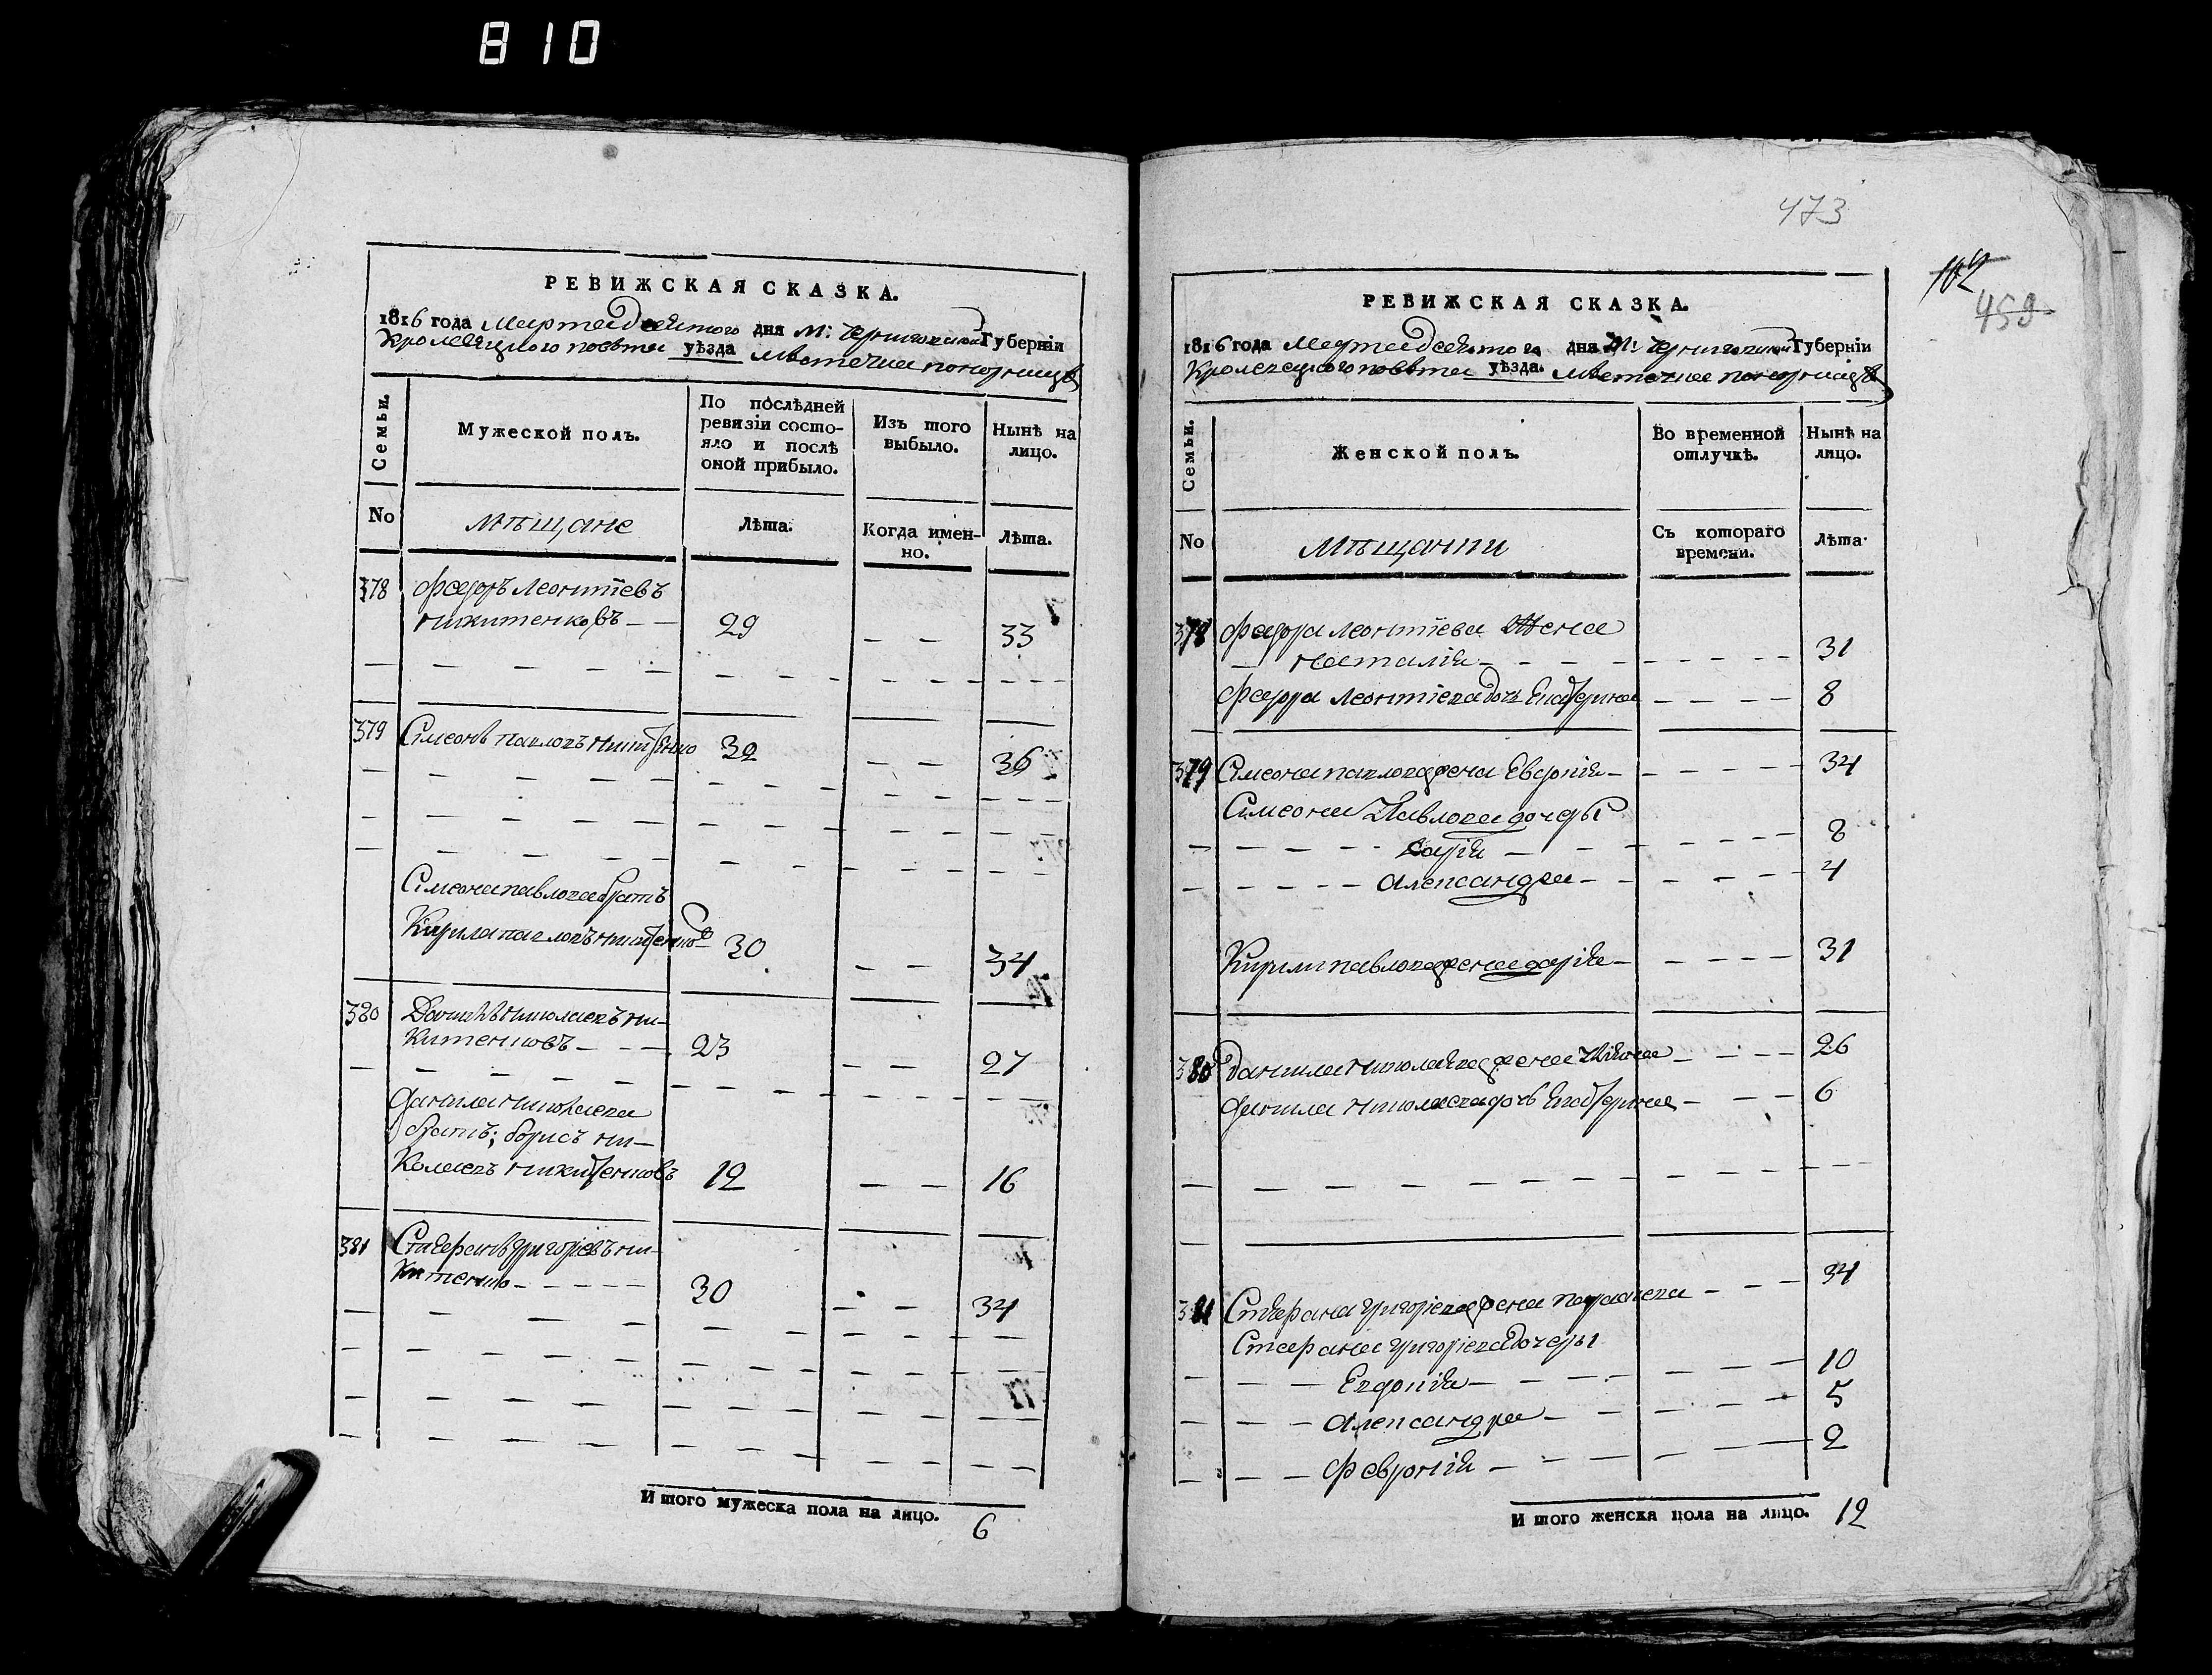 810
РЕВИЖСКАЯ СКАЗКА.
1816 года Марта десятого дня М: Черниговской Губерніи
Кролевецкого повѣта уѣзда мѣстечка понорницы
Семьи.
Мужеской полъ.
По послѣдней ревизіи состояло и послѣ оной прибыло.
Изъ того выбыло.
Нынѣ на лицо.
No
Мѣщане
Лѣта.
Когда именно.
Лѣта.
378 Федоръ Леонтіевъ
никитенковъ — — 29 — — 33
379 Симеонъ павловъ никитенко 32 — — 36
Симеона павлова братъ
Кирила павловъ никитенко 30 — — 34
380 Данилъ николаевъ ни-
китенковъ — — — 23 — — 27
данила николаева
братъ; борисъ ни-
колаевъ никитенковъ 12 — — 16
381 Стефанъ григоріевъ ни-
китенко — — — — — 30 — — 34
И того мужеска пола на лицо. 6
473
102
459
РЕВИЖСКАЯ СКАЗКА.
1816 года Марта десятого дня М: Черниговской Губерніи
Кролевецкого повѣта уѣзда. мѣстечка понорницы
Семьи.
Женской полъ.
Во временной отлучкѣ.
Нынѣ на лицо.
No
Мѣщанки
Съ котораго времени.
Лѣта.
378 Федора леонтіева Жена
— наталія — — — — — — — — 31
Федора леонтіева дочь Екатерина — — — — 8
379 Симеона павлова жена Евфросинія — — — — — 34
Симеона Павлова дочеры
— — — — — — — — — — — — 8
— — — — — александра — — — — — — 4
Кирили павлова жена дарія — — — — — 31
380 Данила николаева жена — — — — 26
данила николаева дочь Екатерина — — — 6
381 Стефана григоріева жена параскева — — — 34
Стефана григоріева дочеры
— — — Евдокія — — — — — — — 10
— — — александра — — — — — — 5
— — — февронія — — — — — — 2
И того женска пола на лицо. 12